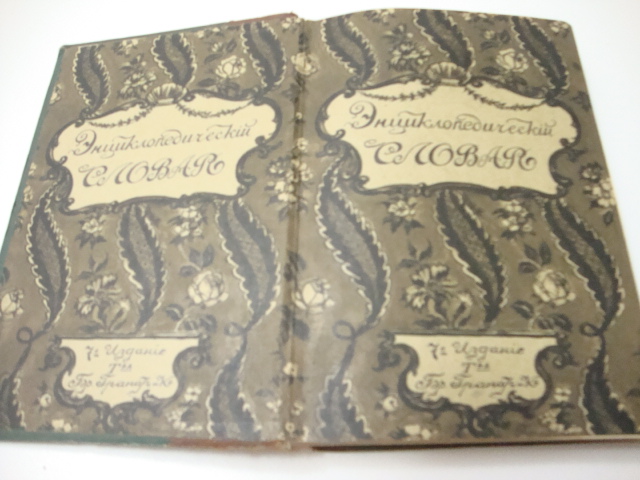 Энциклопедическій
СЛОВАРЬ
7е Изданіе
Тва
Бр. Гранатъ и Ко
Энциклопедическій
СЛОВАРЬ
7е Изданіе
Тва
Бр. Гранатъ и Ко